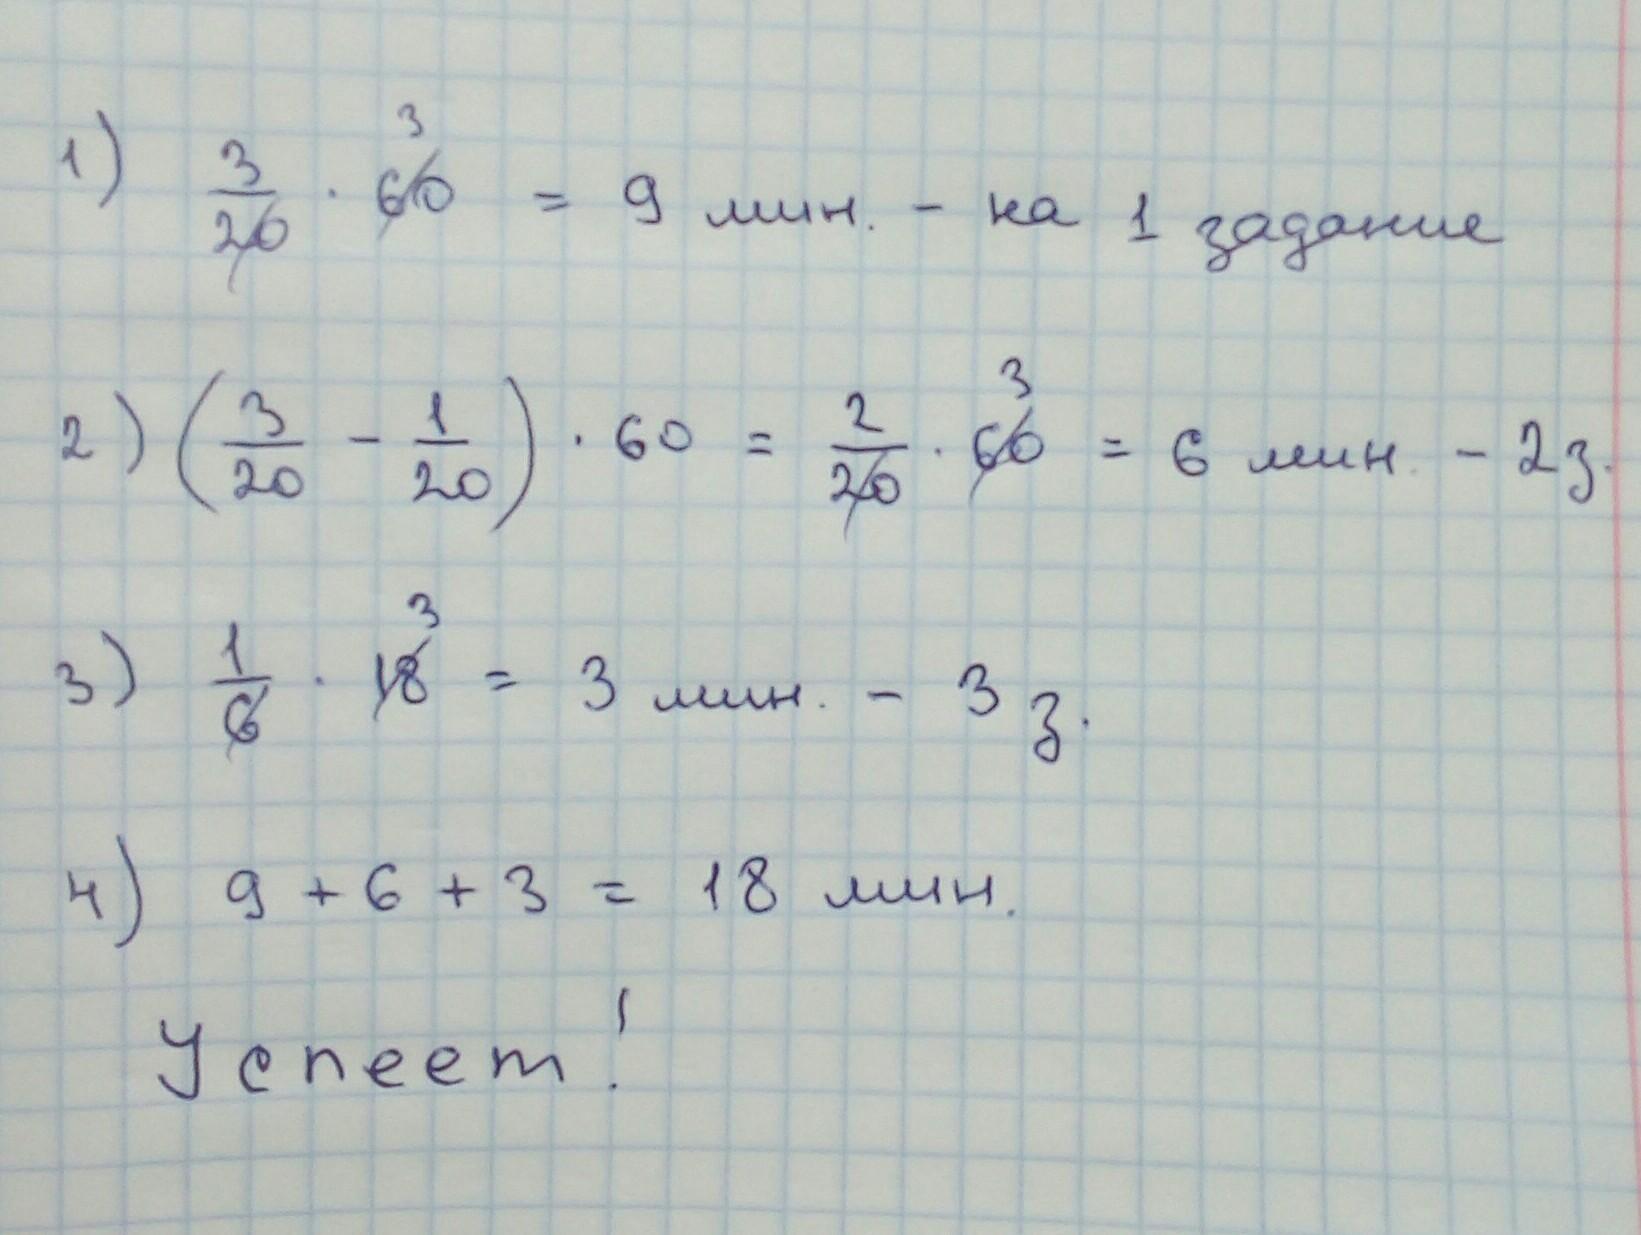 1) 3/20 · 60 3 = 9 мин. - на 1 задание
2) (3/20 - 1/20) · 60 = 2/20 · 60 3 = 6 мин. - 2 з.
3) 1/6 · 18 3 = 3 мин. - 3 з.
4) 9 + 6 + 3 = 18 мин.
Успеет!